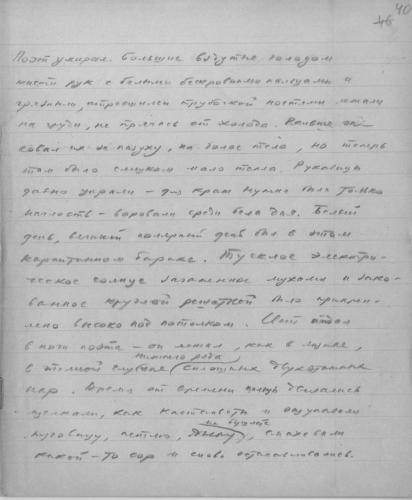 40
46
Поэт умирал. Большие вздутые голодом
кисти рук с белыми бескровными пальцами и
грязными, отросшими трубочкой ногтями лежали
на груди, не прячась от холода. Раньше он
совал их за пазуху, на голое тело, но теперь
там было слишком мало тепла. Рукавицы
давно украли – для краж нужна была только
наглость – воровали среди бела дня.
день, великий полярный день был в этом
карантинном бараке. Тусклое электри-
ческое солнце загаженное мухами и зако-
ванное круглой решеткой было прикреп-
лено высоко под потолком. Свет падал
в ноги поэта – он лежал, как в ящике,
нижнего ряда
в темной глубине сплошных двухэтажных
нар. Время от времени пальцы двигались
щелкали, как кастаньеты и ощупывали
на бушлате
пуговицу, петлю, дыру, смахивали
какой-то сор и снова останавливались.